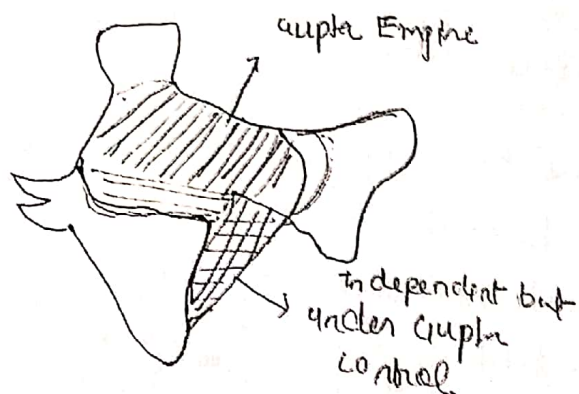 Gupta Empire
Independent but
under Gupta
control.